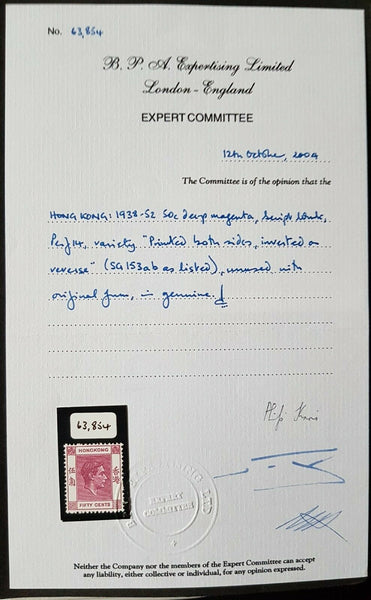 No. 63,854
B. P. A. Expertising Limited
London - England
EXPERT COMMITTEE
12th October, 2004
The Committee is of the opinion that the
HONG KONG: 1938-52 50c deep magenta, Script
Perf 14, variety "Printed both sides, inverted on
reverse" (SG 153ab as listed), unused with
original gum, is genuine.
63,854
HONGKONG
伍毫
香港
FIFTY CENTS
EXPERT
COMMITTEE
Neither the Company nor the members of the Expert Committee can accept
any liability, either collective or individual, for any opinion expressed.